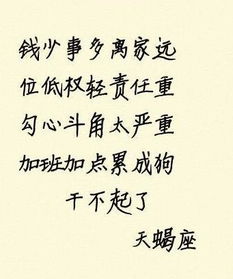 钱少事多离家远
位低权轻责任重
勾心斗角太严重
加班加点累成狗
干不起了
天蝎座